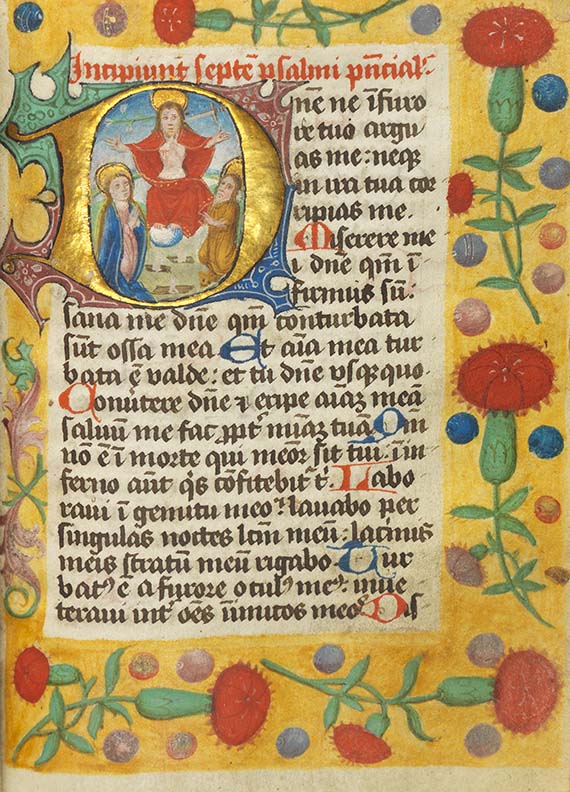 Incipiunt septē psalmi pn̄cial᷒
Dn̄e ne ī furo
re tuo argu
as me : neqꝫ
in ira tua cor
ripias me .
Miserere me
i dn̄e qm̄ ī
firmus sū :
sana me dn̄e qm̄ conturbata
sūt ossa mea Et aīa mea tur
bata ē valde : et tu dn̄e vsqꝫ quo .
Conūtere dn̄e ⁊ eripe aīaꝫ meā
saluum me fac ꝓpt᷒ mīaꝫ tuā Qm̄
nō ē ī morte qui meor᷒ sit tui : ī in
ferno aūt qͥs cōfitebit᷒ t ͥ Labo
raui ī gemitu meo : lauabo per
singulas noctes lc̄m meū : lacimis
meis stratū meū rigabo Tur
batꝰ ē a furore oculꝰ meꝰ : inue
teraui int᷒ oēs īimicos meos Dis